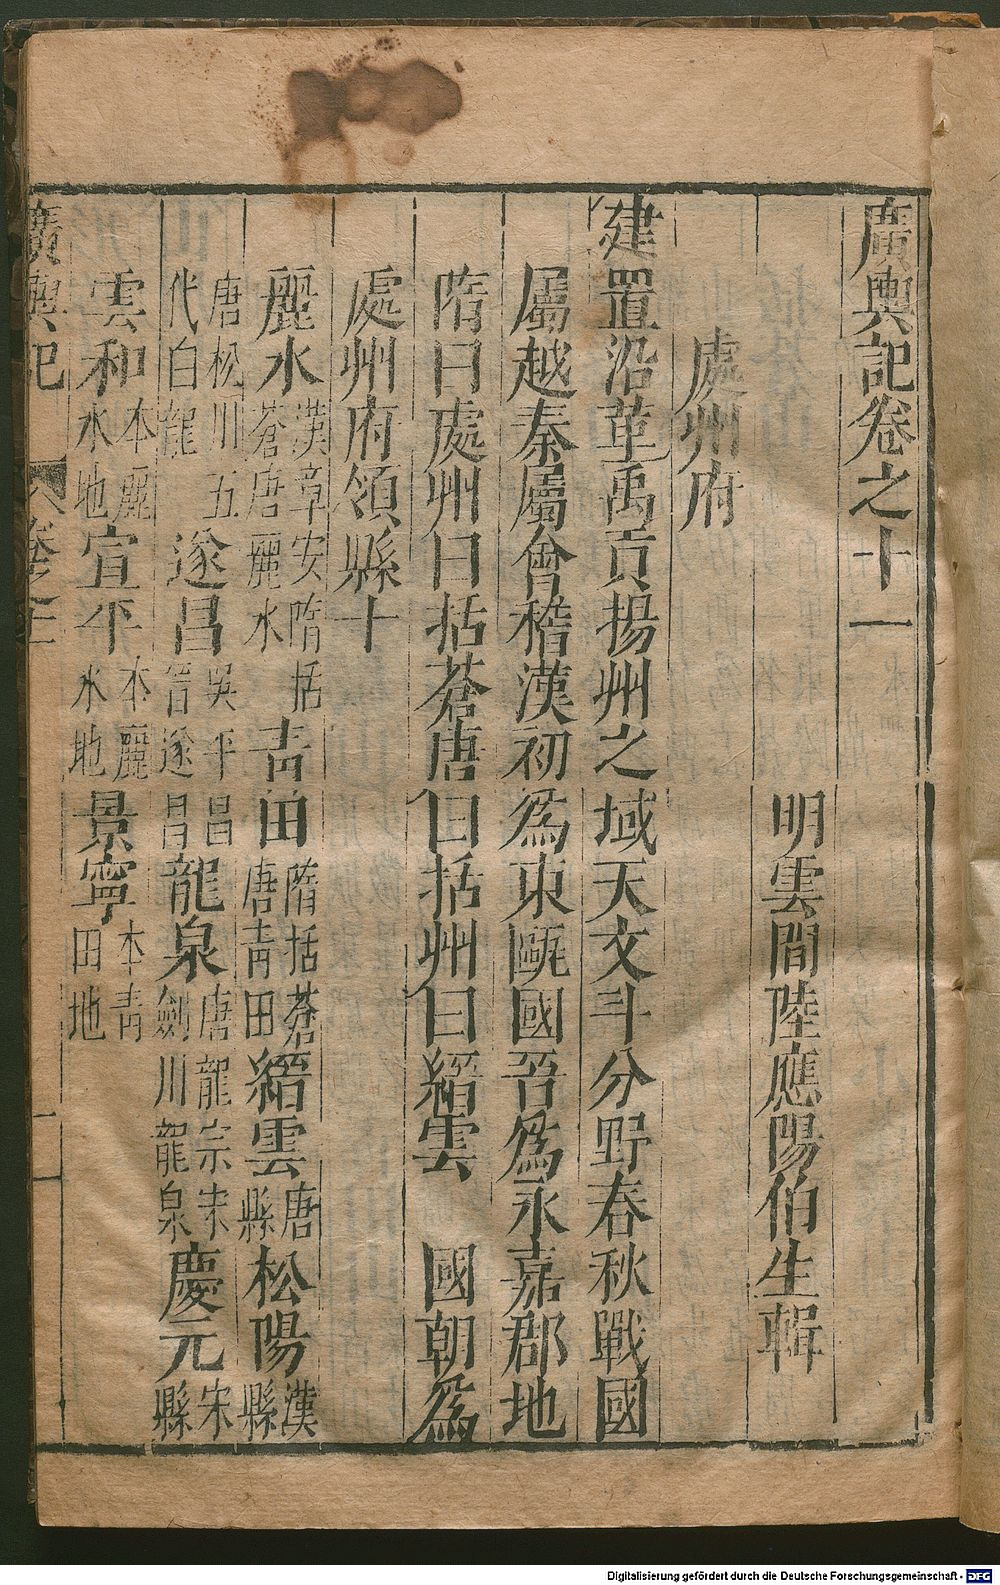 廣輿記卷之十一
明雲間陸應陽伯生輯
處州府
建置沿革禹貢揚州之域天文斗分野春秋戰國
屬越秦屬會稽漢初爲東甌國吾爲永嘉郡地
隋曰處州曰括蒼唐曰括州曰縉雲 國朝爲
處州府領縣十
麗水漢章安隋括蒼唐麗水青田隋括蒼唐青田縉雲唐縣松陽漢縣
唐松川五代白龍遂昌吳平昌晉遂昌龍泉唐龍宗宋劍川龍泉慶元宋縣
雲和本麗水地宣平本麗水地景寧本青田地
廣輿記 卷之十一 一
Digitalisierung gefördert durch die Deutsche Forschungsgemeinschaft - DFG